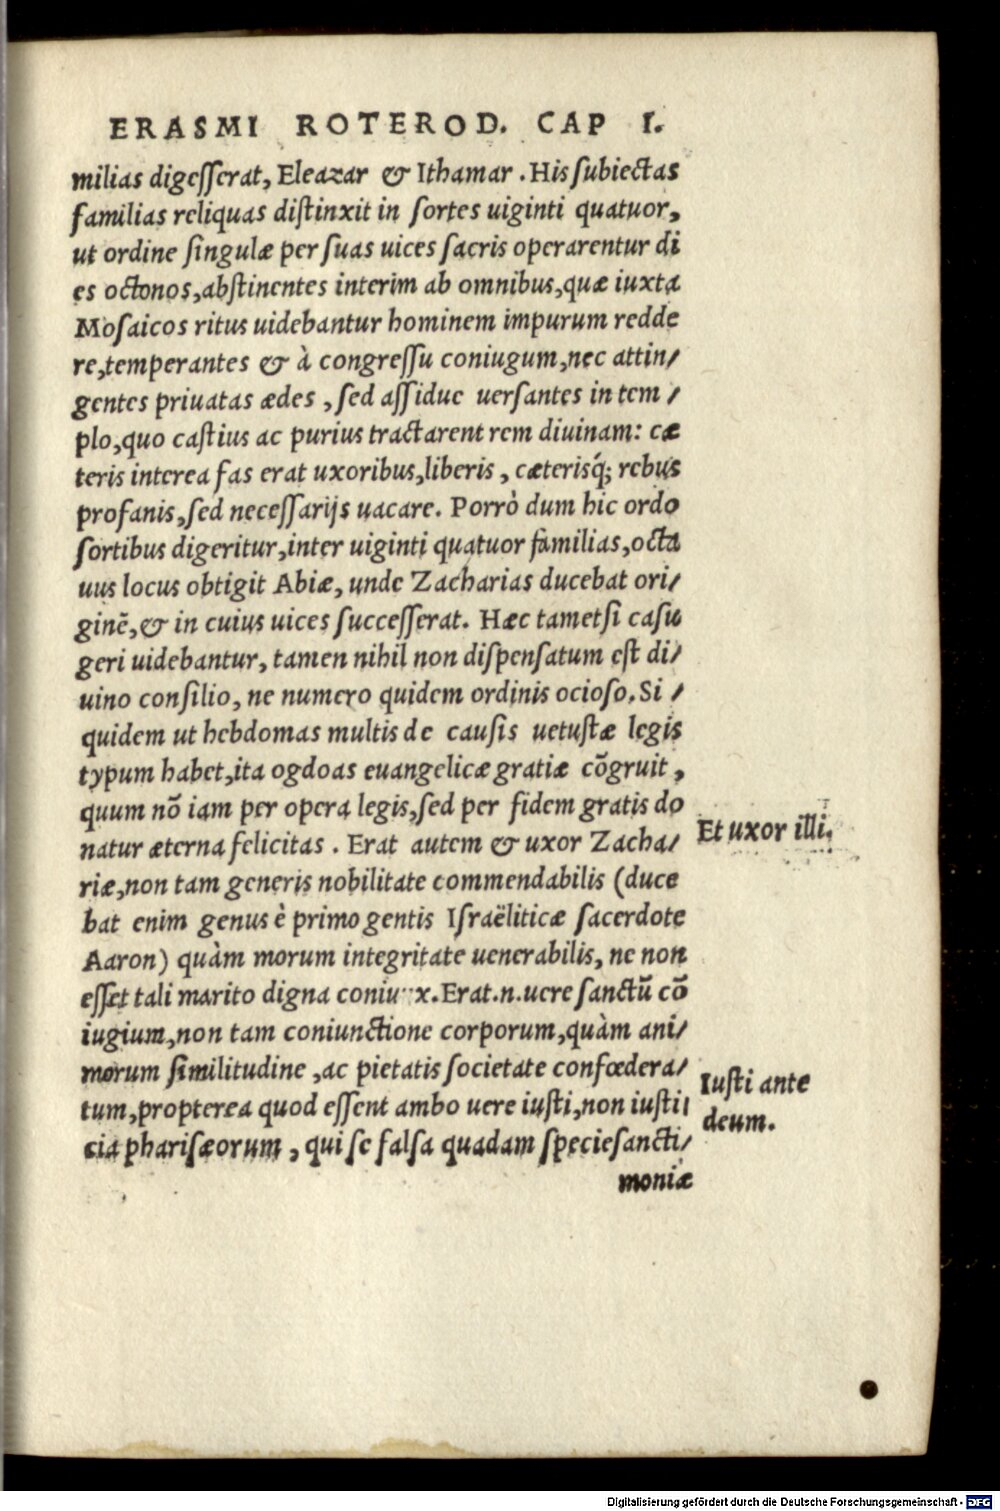 ERASMI ROTEROD. CAP I.
milias digesserat, Eleazar & Ithamar. His subiectas
familias reliquas distinxit in sortes uiginti quatuor,
ut ordine singulæ per suas uices sacris operarentur di
es octonos, abstinentes interim ab omnibus, quæ iuxta
Mosaicos ritus uidebantur hominem impurum redde
re, temperantes & à congressu coniugum, nec attin/
gentes priuatas ædes, sed assidue uersantes in tem/
plo, quo castius ac purius tractarent rem diuinam: cæ
teris interea fas erat uxoribus, liberis, cæterisq́; rebus
profanis, sed necessarijs uacare. Porrò dum hic ordo
sortibus digeritur, inter uiginti quatuor familias, octa
uus locus obtigit Abiæ, unde Zacharias ducebat ori/
ginē, & in cuius uices successerat. Hæc tametsi casu
geri uidebantur, tamen nihil non dispensatum est di/
uino consilio, ne numero quidem ordinis ocioso. Si/
quidem ut hebdomas multis de causis uetustæ legis
typum habet, ita ogdoas euangelicæ gratiæ cōgruit,
quum nō iam per opera legis, sed per fidem gratis do
natur æterna felicitas. Erat autem & uxor Zacha/
Et uxor illi.
riæ, non tam generis nobilitate commendabilis (duce
bat enim genus è primo gentis Israëliticæ sacerdote
Aaron) quàm morum integritate uenerabilis, ne non
esset tali marito digna coniux. Erat.n.uere sanctū cō
iugium, non tam coniunctione corporum, quàm ani/
morum similitudine, ac pietatis societate confœdera/
tum, propterea quod essent ambo uere iusti, non iusti/
Iusti ante
deum.
cia pharisæorum, qui se falsa quadam specie sancti/
moniæ
Digitalisierung gefördert durch die Deutsche Forschungsgemeinschaft - DFG